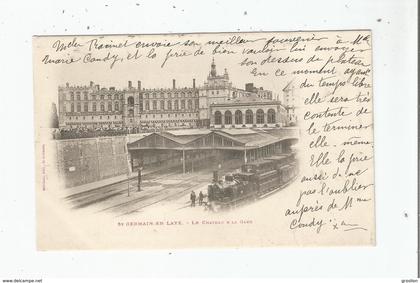 Mᵉˡˡᵉ Rabinet envoie son meilleur souvenir à Mᵐᵉ
Marie Candy, et la prie de bien vouloir lui envoyer
son dessus de plateau
En ce moment ayant
du temps libre
elle sera très
contente de
le terminer
elle-même.
Elle la prie
aussi de ne
pas l'oublier
auprès de Mᵐᵉ
Candy.
ST GERMAIN-EN LAYE. - LE CHATEAU & LA GARE